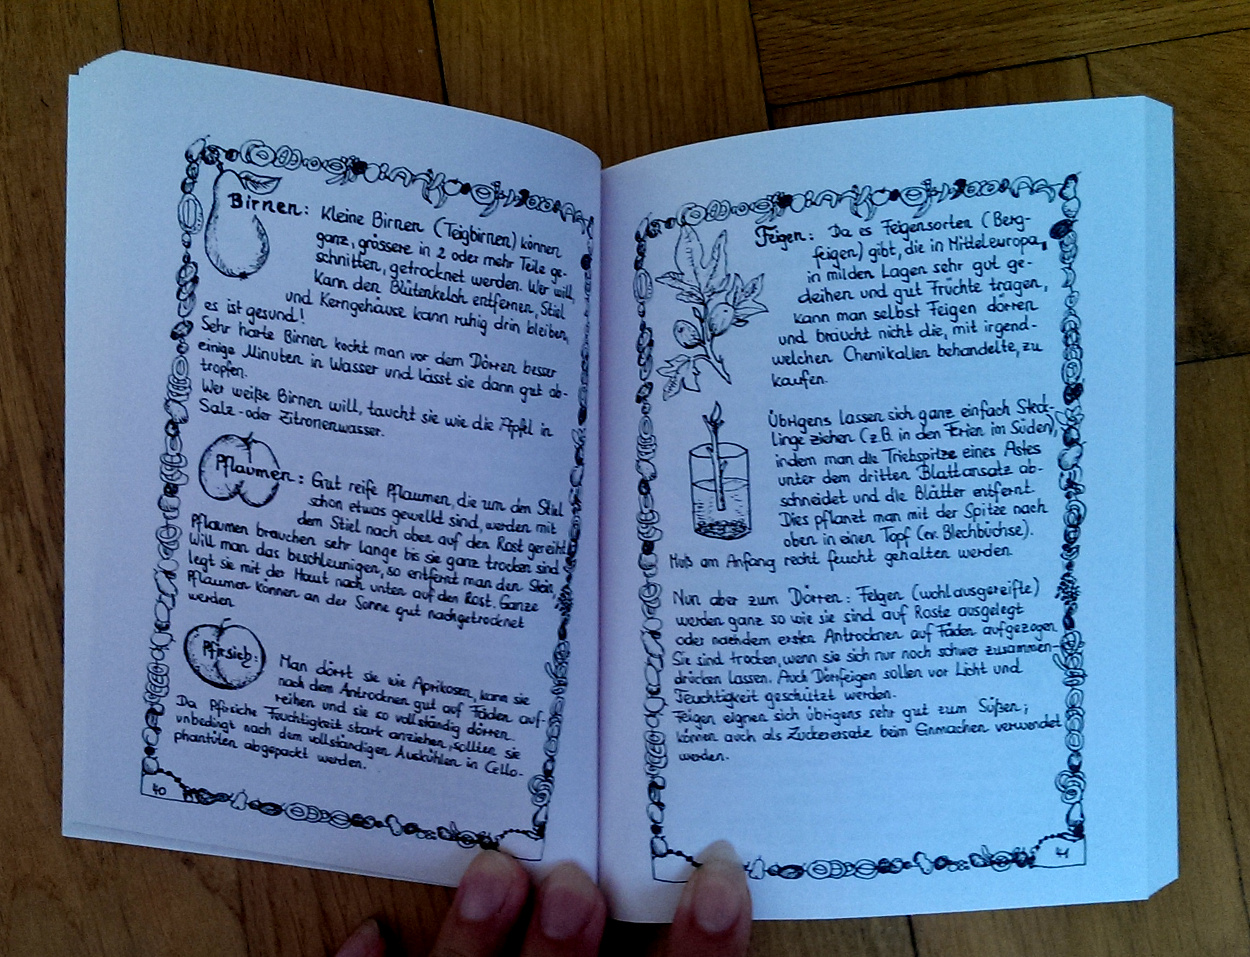 Birnen: Kleine Birnen (Teigbirnen) können
ganz, grössere in 2 oder mehr Teile ge-
schnitten, getrocknet werden. Wer will,
kann den Blütenkelch entfernen, Stiel
und Kerngehäuse kann ruhig drin bleiben,
es ist gesund!
Sehr harte Birnen kocht man vor dem Dörren besser
einige Minuten in Wasser und lässt sie dann gut ab-
tropfen.
Wer weiße Birnen will, taucht sie wie die Äpfel in
Salz- oder Zitronenwasser.
Pflaumen: Gut reife Pflaumen, die um den Stiel
schon etwas gewelkt sind, werden mit
dem Stiel nach oben auf den Rost gereiht
Pflaumen brauchen sehr lange bis sie ganz trocken sind
Will man das beschleunigen, so entfernt man den Stein,
legt sie mit der Haut nach unten auf den Rost. Ganze
Pflaumen können an der Sonne gut nachgetrocknet
werden
Pfirsich: Man dörrt sie wie Aprikosen, kann sie
nach dem Antrocknen gut auf Fäden auf-
reihen und sie so vollständig dörren.
Da Pfirsiche Feuchtigkeit stark anziehen, sollten sie
unbedingt nach dem vollständigen Auskühlen in Cello-
phantüten abgepackt werden.
40
Feigen: Da es Feigensorten (Berg-
feigen) gibt, die in Mitteleuropa,
in milden Lagen sehr gut ge-
deihen und gut Früchte tragen,
kann man selbst Feigen dörren
und braucht nicht die, mit irgend-
welchen Chemikalien behandelte, zu
kaufen.
Übrigens lassen sich ganz einfach Steck-
linge ziehen (z.B. in den Ferien im Süden),
indem man die Triebspitze eines Astes
unter dem dritten Blattansatz ab-
schneidet und die Blätter entfernt.
Dies pflanzt man mit der Spitze nach
oben in einen Topf (ev. Blechbüchse).
Muß am Anfang recht feucht gehalten werden
Nun aber zum Dörren: Feigen (wohlausgereifte)
werden ganz so wie sie sind auf Roste ausgelegt
oder nach dem ersten Antrocknen auf Fäden aufgezogen.
Sie sind trocken, wenn sie sich nur noch schwer zusammen-
drücken lassen. Auch Dörrfeigen sollen vor Licht und
Feuchtigkeit geschützt werden.
Feigen eignen sich übrigens sehr gut zum Süßen;
können auch als Zuckerersatz beim Einmachen verwendet
werden.
41